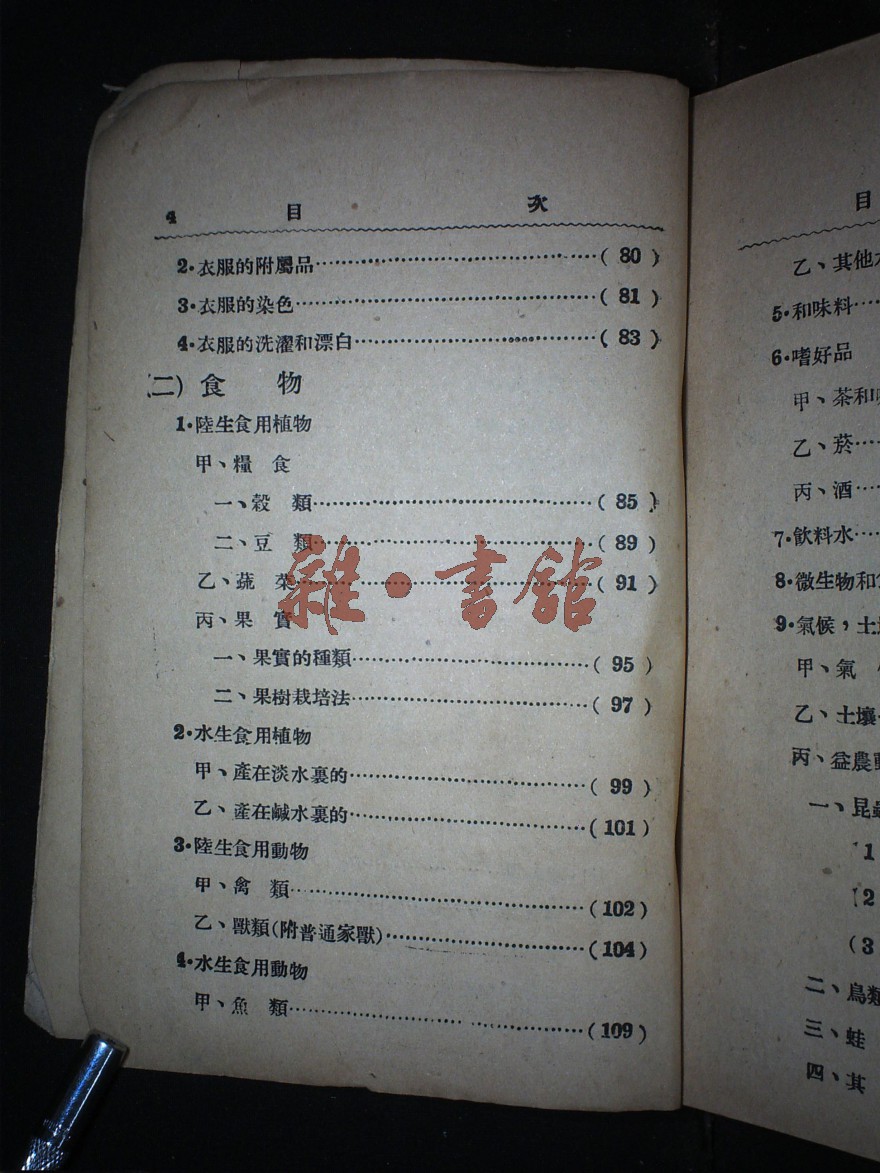 4 目 次
2·衣服的附屬品……(80)
3·衣服的染色……(81)
4·衣服的洗濯和漂白……(83)
(二) 食 物
1·陸生食用植物
甲、糧 食
一、穀 類……(85)
二、豆 類……(89)
乙、蔬 菜……(91)
丙、果 實
一、果實的種類……(95)
二、果樹栽培法……(97)
2·水生食用植物
甲、產在淡水裏的……(99)
乙、產在鹹水裏的……(101)
3·陸生食用動物
甲、禽 類……(102)
乙、獸類(附普通家獸)……(104)
4·水生食用動物
甲、魚 類……(109)
雜·書館
目
乙、其他
5·和味料……
6·嗜好品
甲、茶和
乙、菸……
丙、酒……
7·飲料水……
8·微生物和
9·氣候，土
甲、氣
乙、土壤
丙、益農
一、昆
1
(2
(3
二、鳥類
三、蛙
四、其